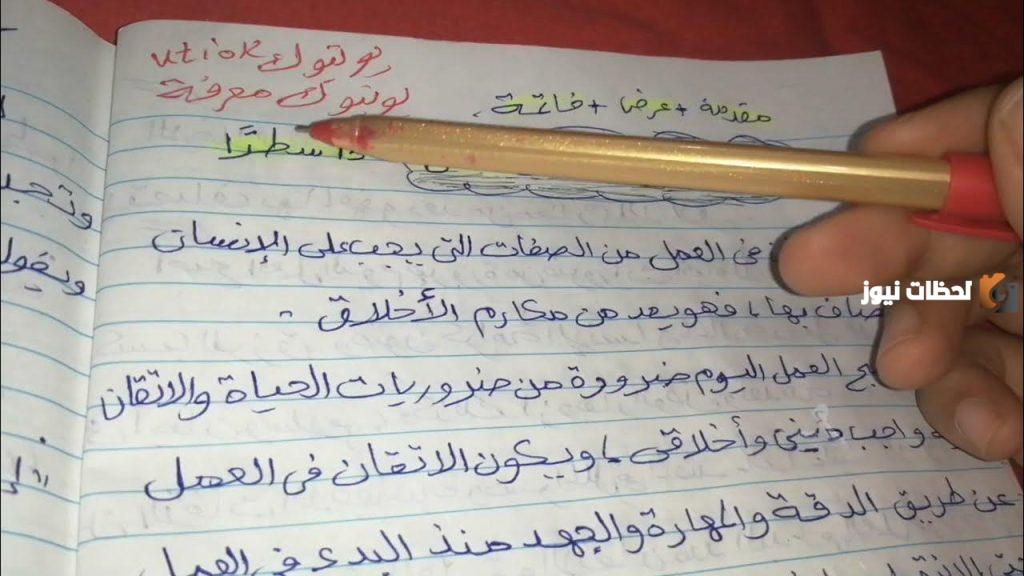 يوتيوك utiok
يوتيوك معرفة
مقدمة + عرض + خاتمة
سطرًا
فى العمل من الصفات التى يجب على الإنسان
بها، فهو يعد من مكارم الأخلاق -
العمل اليوم ضرورة من ضروريات الحياة والاتقان
واجب دينى وأخلاقى، ويكون الاتقان فى العمل
عن طريق الدقة والمهارة والجهد منذ البدء فى العمل
وتجد
ويقول
لحظات نيوز